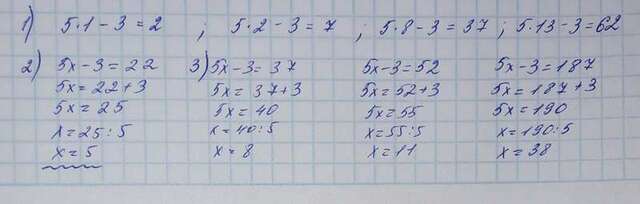 1) 5·1-3=2 ; 5·2-3=7 ; 5·8-3=37 ; 5·13-3=62
2) 5x-3=22 3) 5x-3=37 5x-3=52 5x-3=187
5x=22+3 5x=37+3 5x=52+3 5x=187+3
5x=25 5x=40 5x=55 5x=190
x=25:5 x=40:5 x=55:5 x=190:5
x=5 x=8 x=11 x=38